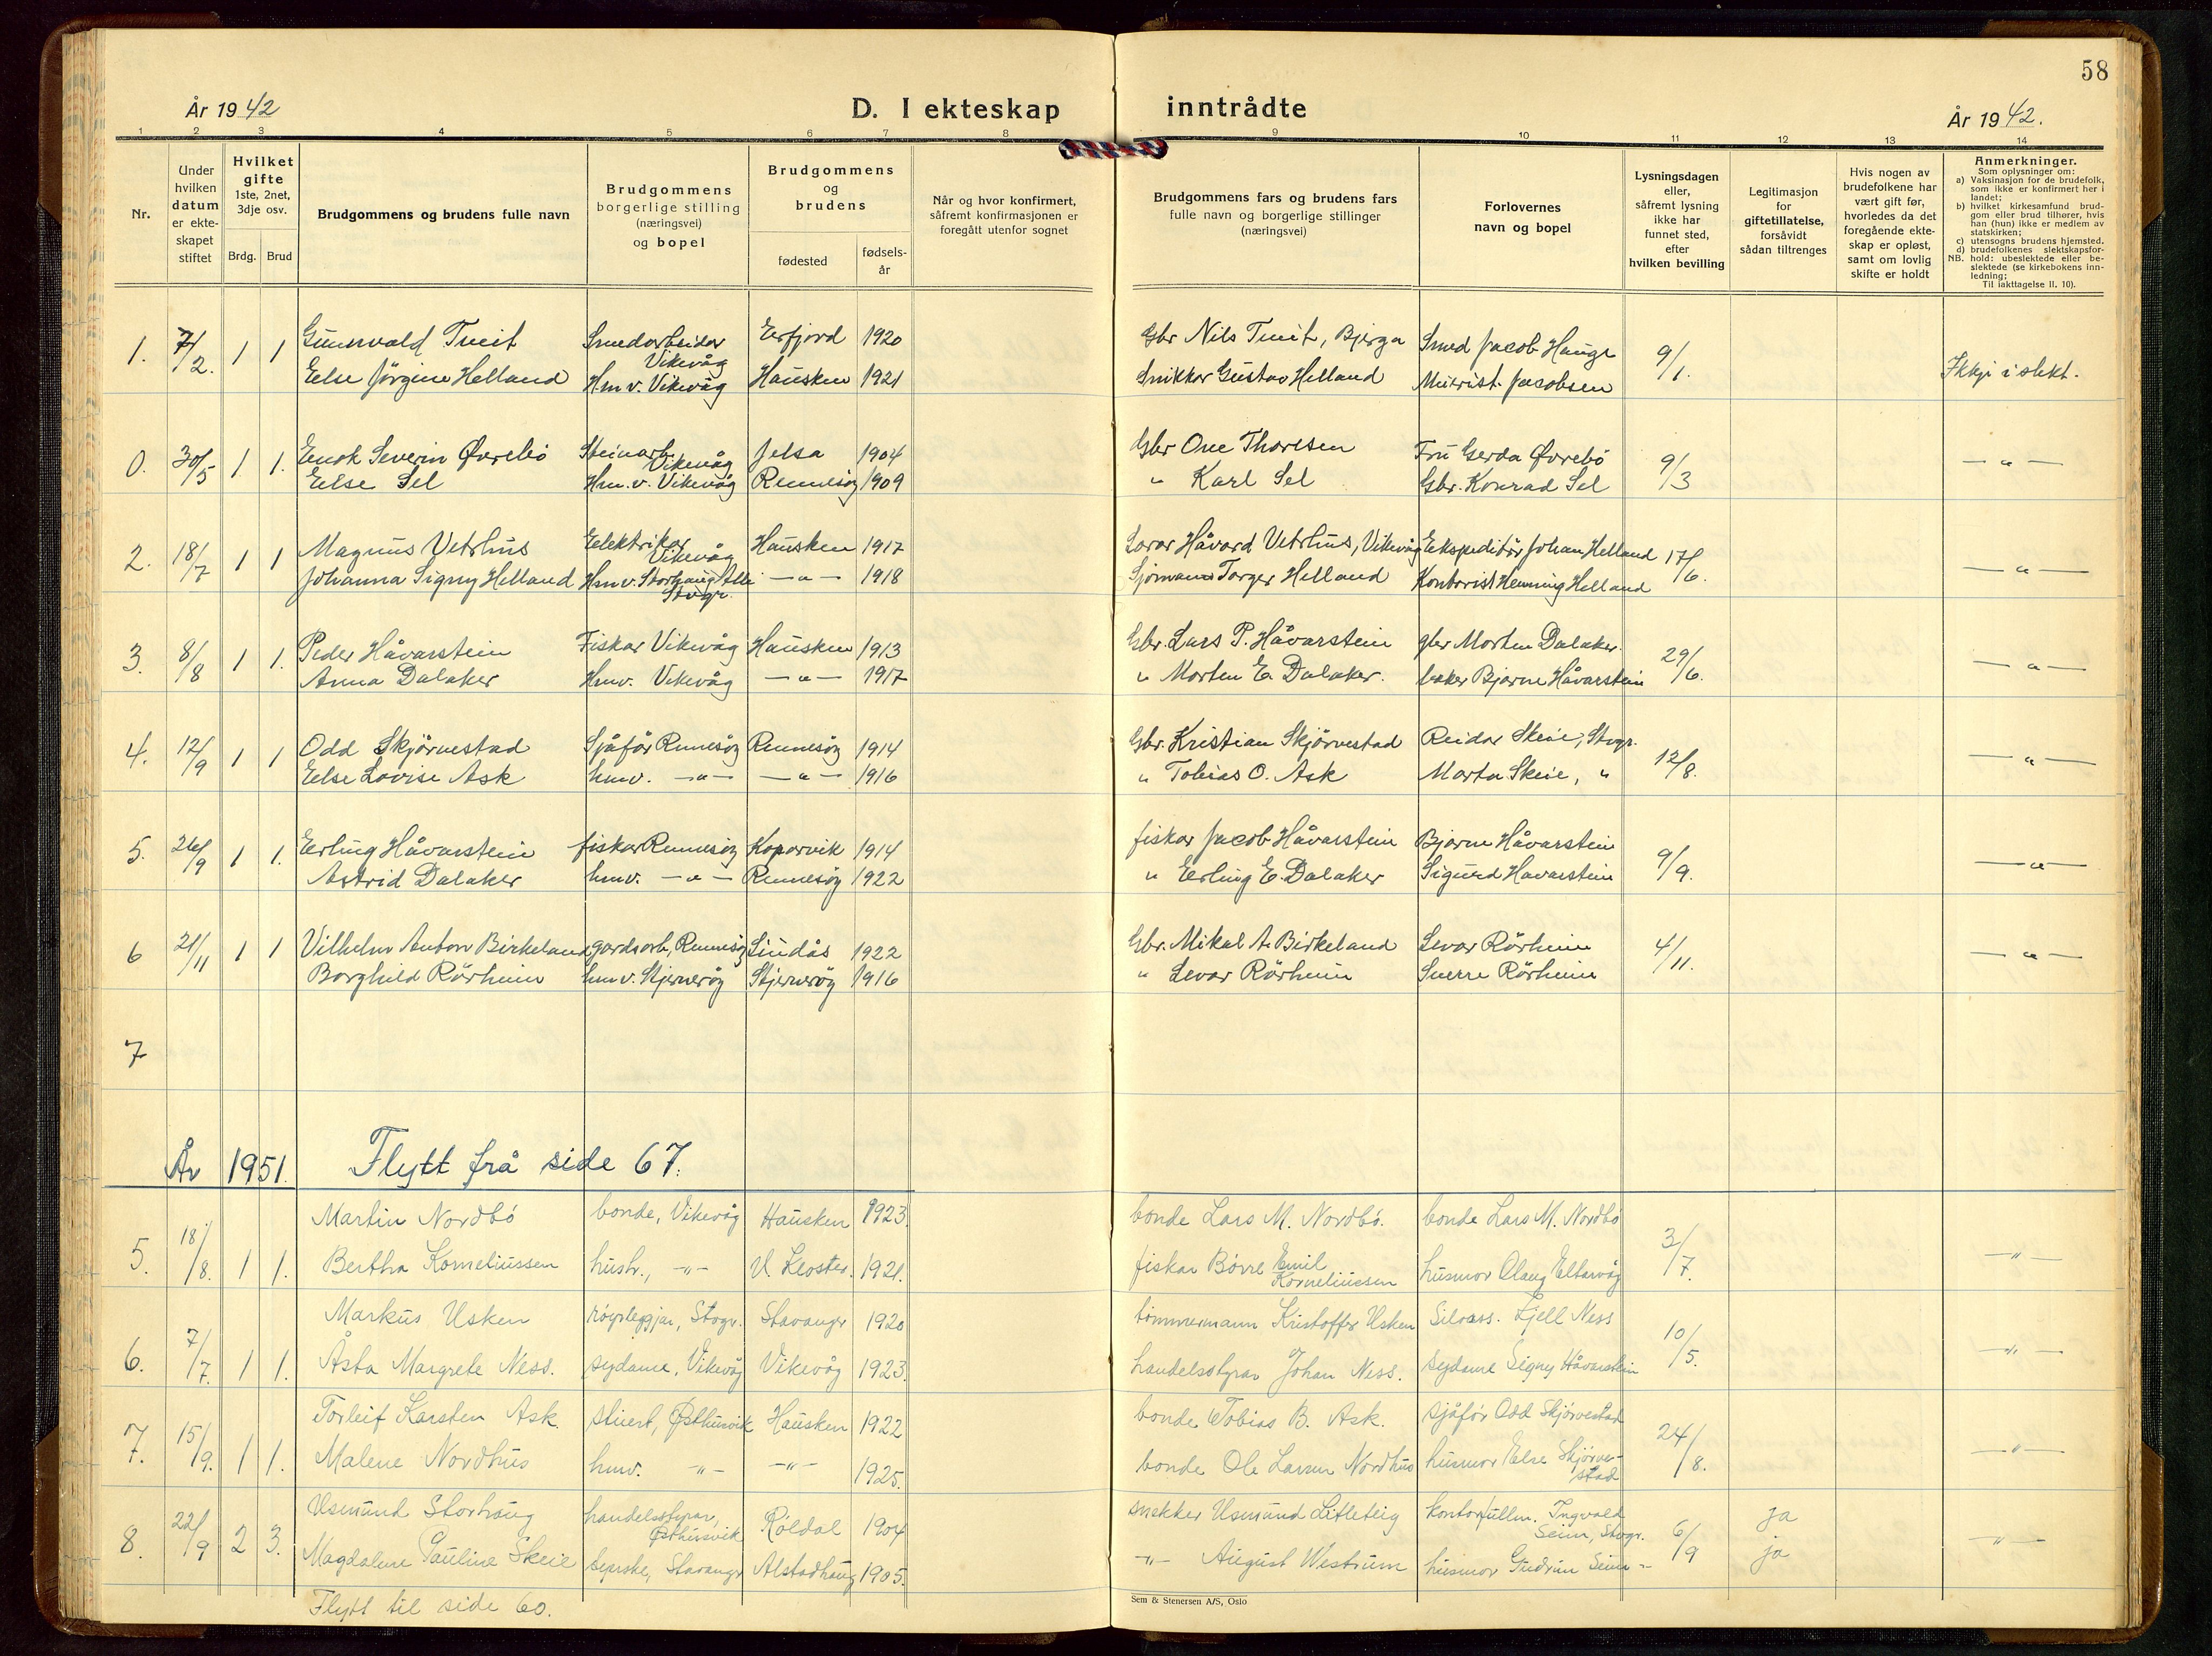 58
År 1942
D. I ekteskap inntrådte
År 1942.
1 2 3 4 5 6 7 8 9 10 11 12 13 14
Nr.
Under hvilken datum er ekte-skapet stiftet
Hvilket gifte
1ste, 2net, 3dje osv.
Brdg. Brud
Brudgommens og brudens fulle navn
Brudgommens borgerlige stilling (næringsvei) og bopel
Brudgommens og brudens
fødested
fødsels-år
Når og hvor konfirmert, såfremt konfirmasjonen er foregått utenfor sognet
Brudgommens fars og brudens fars fulle navn og borgerlige stillinger (næringsvei)
Forlovernes navn og bopel
Lysningsdagen eller, såfremt lysning ikke har funnet sted, efter hvilken bevilling
Legitimasjon for giftetillatelse, forsåvidt sådan tiltrenges
Hvis nogen av brudefolkene har vært gift før, hvorledes da det foregående ekte-skap er opløst, samt om lovlig skifte er holdt
Anmerkninger.
Som oplysninger om:
a) Vaksinasjon for de brudefolk, som ikke er konfirmert her i landet;
b) hvilket kirkesamfund brud-gom eller brud tilhører, hvis han (hun) ikke er medlem av statskirken;
c) utensogns brudens hjemsted.
d) brudefolkenes slektskapsfor-
NB. hold: ubeslektede eller be-slektede (se kirkebokens inn-ledning;
Til iakttagelse II. 10).
1. 7/2. 1 1 Gunnvald Tveit Smedarbeidar Vikevåg Erfjord 1920 Gbr Nils Tveit, Bjerga Smed Jacob Hauge 9/1. Ikkje i slekt.
Else Jørgine Helland Hmv. Vikevåg Hausken 1921 Snikkar Gustav Helland Jacobsen
0. 30/5 1 1. Enok Severin Øvrebö Steinarb. Vikevåg Jelsa 1904 Gbr One Thorsen Fru Gerda Øvrebö 9/3 — " —
Else Sel Hm.v. Vikevåg Rennesöy 1909 " Karl Sel Gbr. Konrad Sel
2. 18/7 1 1 Magnus Vetrhus Elektrikar Vikevåg Hausken 1917 Lærar Håvard Vetrhus, Vikevåg Ekspeditör Johan Helland 17/6. — " —
Johanna Signy Helland Hmv. Storhaug Alle Stvgr. — " — 1918 Sjömann Torger Helland Kontorist Henning Helland
3. 8/8 1 1. Peder Håvarstein Fiskar Vikevåg Hausken 1913 Gbr. Lars P. Håvarstein gbr Morten Dalaker. 29/6. — " —
Anna Dalaker Hmv. Vikevåg — " — 1917 " Morten E. Dalaker. baker Bjarne Håvarstein
4. 12/9 1 1 Odd Skjörvestad Sjåför Rennesöy Rennesöy 1914 Gbr. Kristian Skjörvestad Reidar Skeie, Stvgr. 12/8. — " —
Else Lovise Ask hmv. — " — — " — 1916 " Tobias O. Ask Marta Skeie, "
5. 26/9 1 1. Erling Håvarstein fiskar Rennesöy Kopervik 1914 fiskar Jacob Håvarstein Bjarne Håvarstein 9/9. — " —
Astrid Dalaker hmv. — " — Rennesöy 1922 " Erling E. Dalaker Sigurd Håvarstein
6 21/11 1 1 Vilhelm Anton Birkeland gardsarb, Rennesöy Lindås 1922 Gbr. Mikal A. Birkeland Sevar Rörheim 4/11. — " —
Borghild Rörheim hmv. Sjernerøy Sjernerøy 1916 " Sevar Rörheim Sverre Rörheim
7
År 1951. Flytt frå side 67.
5. 18/8. 1 1. Martin Nordbö bonde, Vikevåg Hausken 1923. bonde Lars M. Nordbö. bonde Lars M. Nordbö 3/7. — " —
Bertha Korneliussen hush., — " — V. Kloster. 1921. fiskar Børre Emil Korneliussen husmor Olaug Eltarvåg
6. 7/7. 1 1. Markus Usken røyrleggjar, Stvgr. Stavanger 1920 tömmermann Kristoffer Usken Kjell Ness 10/5. — " —
Åsta Margrete Ness. sydame, Vikevåg Vikevåg 1923. handelsstyrar Johan Ness. sydame Signy Håvarstein
7. 15/9. 1 1. Torleif Karsten Ask stuert, Østhusvik Hausken 1922 bonde Tobias B. Ask. sjåför Odd Skjörvestad 24/8. — " —
Malene Nordhus hmv. — " — — " — 1925. bonde Ole Larsen Nordhus husmor Else Skjörve-stad
8. 22/9 2 3. Usmund Storhaug handelsstyrar, Østhusvik Röldal 1904 snekker Usmund Litleteig kontorfullm. Ingvald Seim, Stvgr. 6/9 ja — " —
Magdalene Pauline Skeie Stavanger Alstadhaug 1905. — " — August Westrum husmor Gudrun Seim — " ja
Flytt til side 60.
Sem & Stenersen A/S, Oslo